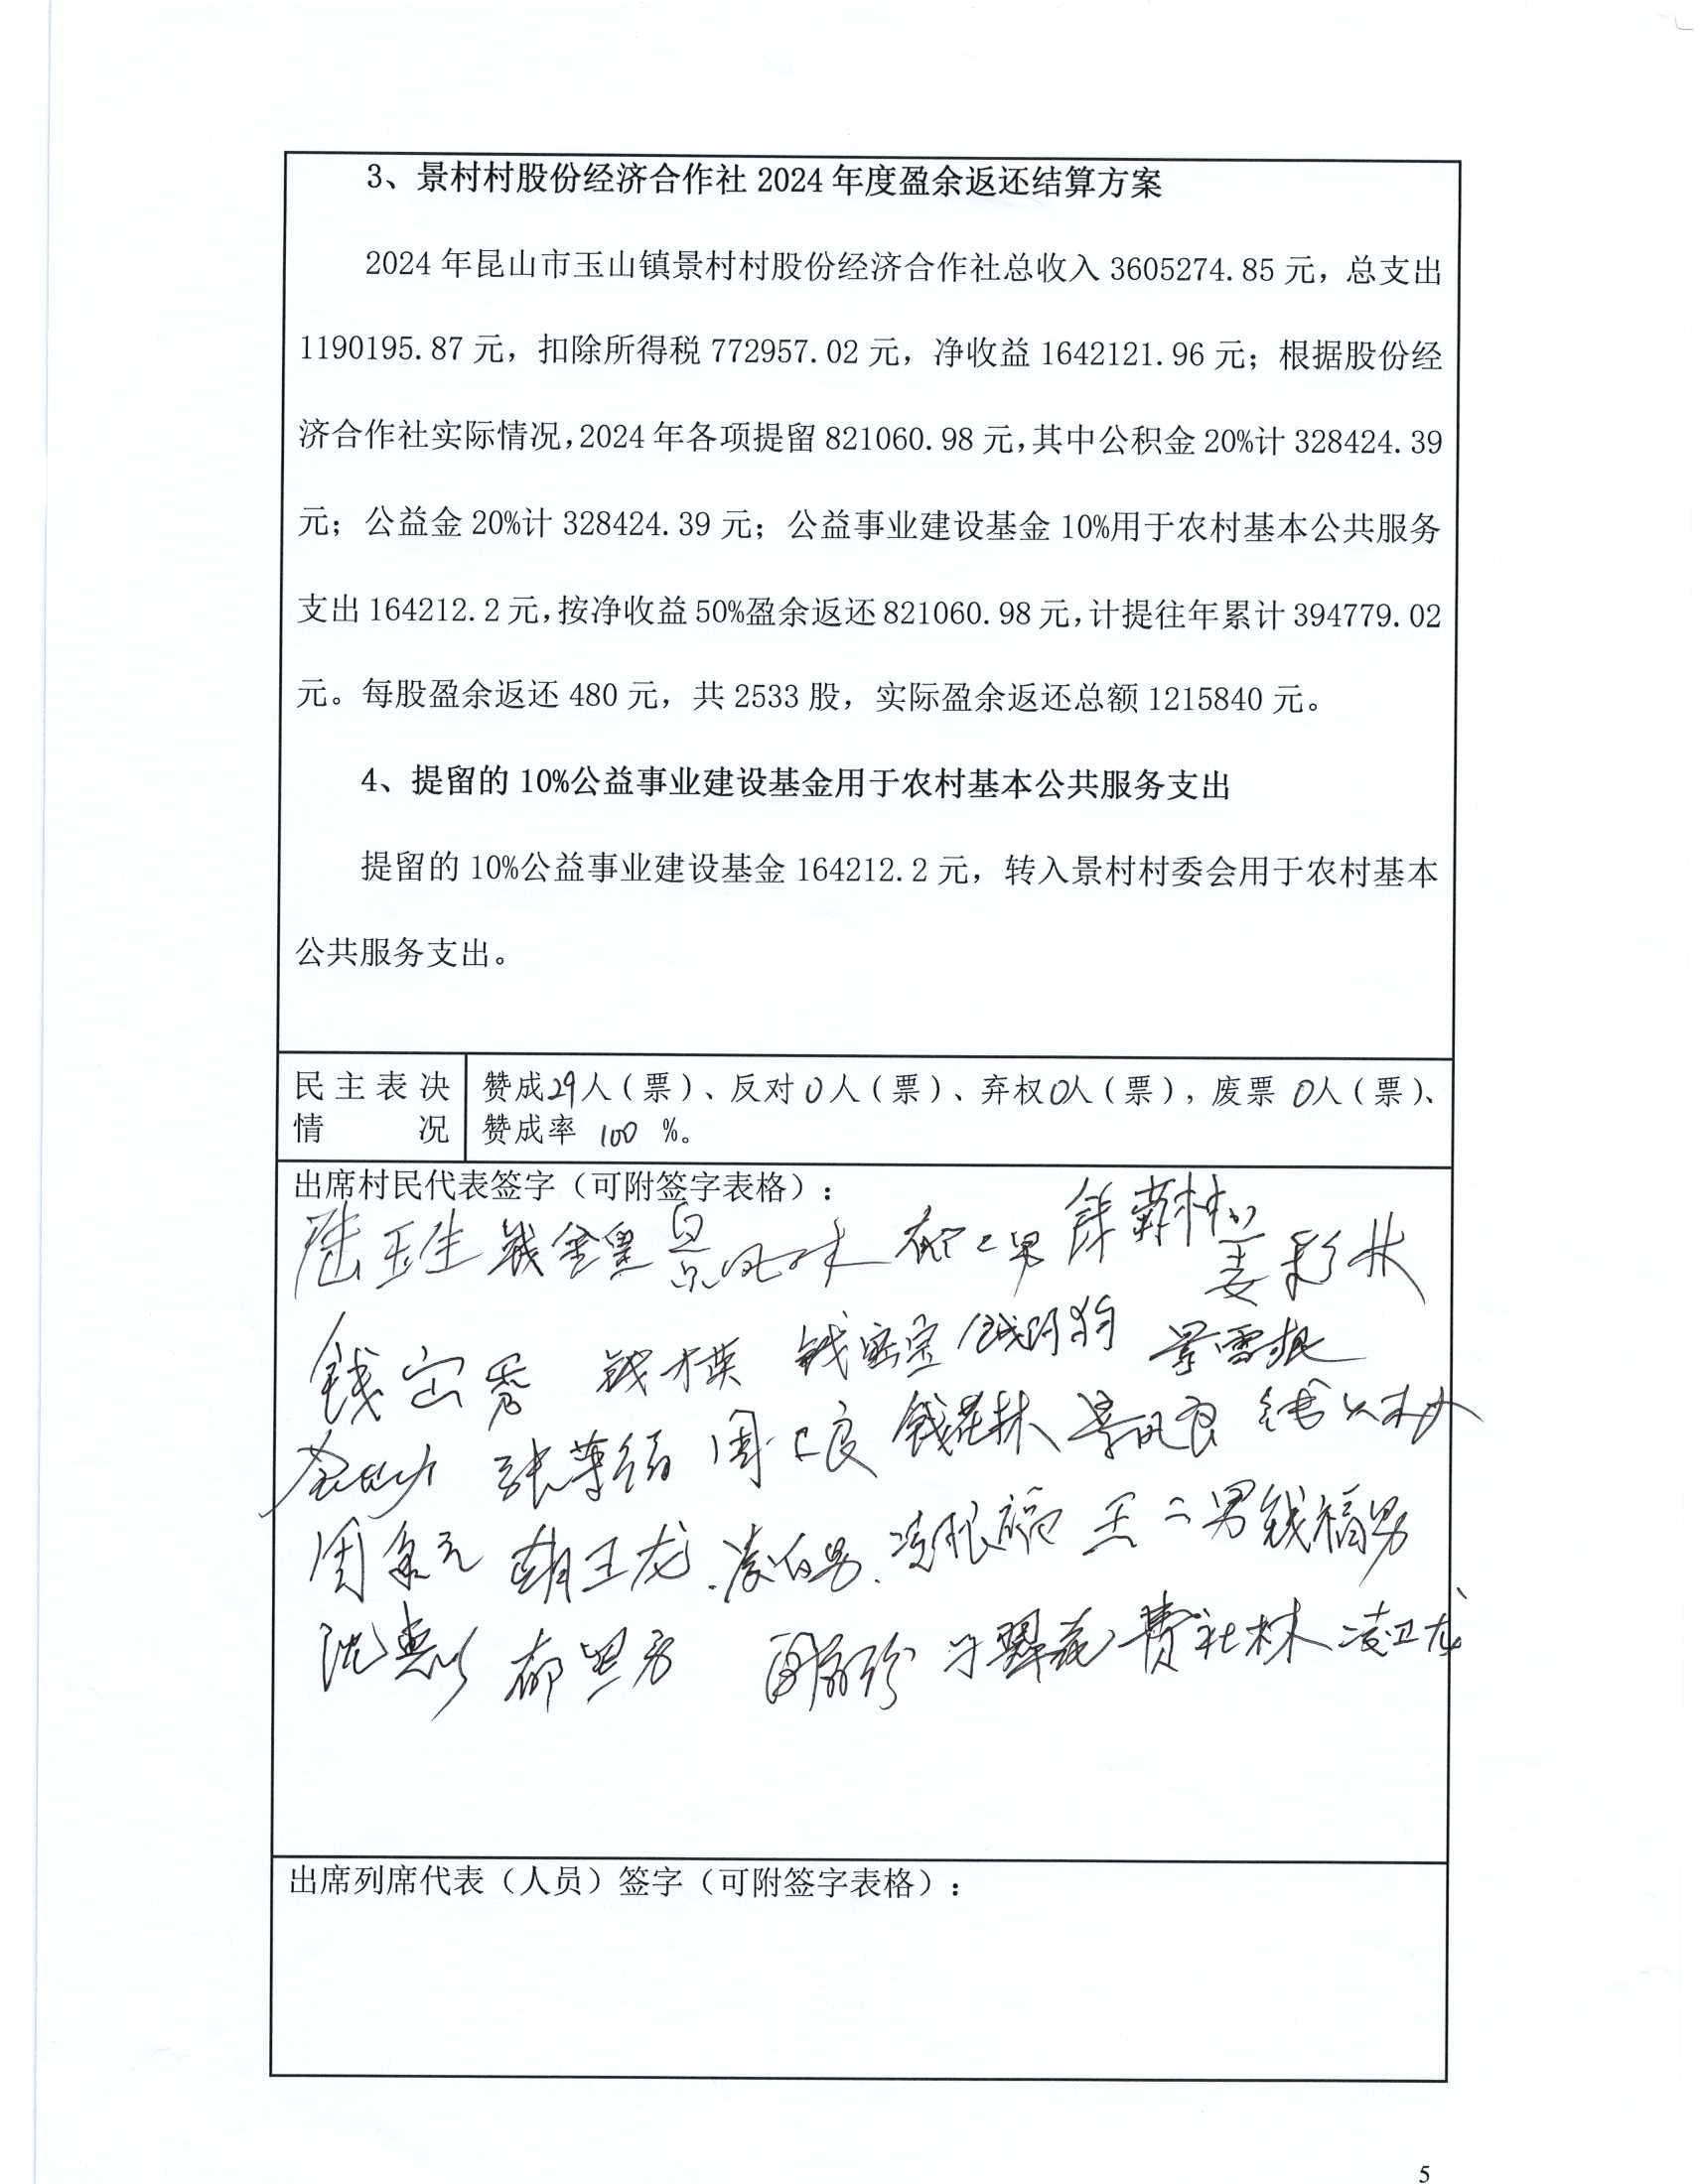 3、景村村股份经济合作社 2024 年度盈余返还结算方案
2024 年昆山市玉山镇景村村股份经济合作社总收入 3605274.85 元，总支出
1190195.87 元，扣除所得税 772957.02 元，净收益 1642121.96 元；根据股份经
济合作社实际情况，2024 年各项提留 821060.98 元，其中公积金 20%计 328424.39
元；公益金 20%计 328424.39 元；公益事业建设基金 10%用于农村基本公共服务
支出 164212.2 元，按净收益 50%盈余返还 821060.98 元，计提往年累计 394779.02
元。每股盈余返还 480 元，共 2533 股，实际盈余返还总额 1215840 元。
4、提留的 10%公益事业建设基金用于农村基本公共服务支出
提留的 10%公益事业建设基金 164212.2 元，转入景村村委会用于农村基本
公共服务支出。
民主表决情况
赞成29人（票）、反对0人（票）、弃权0人（票），废票 0人（票）、
赞成率 100 %。
出席村民代表签字（可附签字表格）：
陆玉生 钱金皇 姜彩林
景雪根
钱花林 景凤良
王二男 钱福男
费社林 凌卫龙
出席列席代表（人员）签字（可附签字表格）：
5